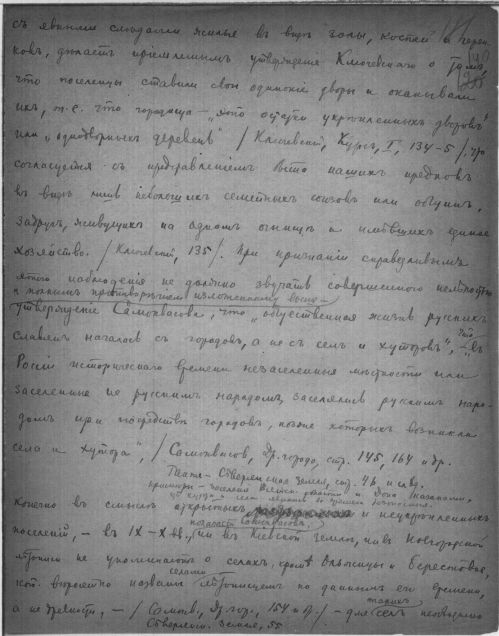 съ явными слѣдами жилья въ видѣ золы, костей и череп-
ковъ, дѣлаетъ пріемлемымъ утвержденіе Ключевскаго о томъ,
что поселенцы ставили свои одинокіе дворы и окапывали
ихъ, т.е. что городища – „это остатки укрѣпленныхъ дворовъ"
или „однодворныхъ деревень" / Ключевскій, Курсъ, I, 134-5 /, что
согласуется съ представленіемъ быта нашихъ предковъ
въ видѣ небольшихъ семейныхъ союзовъ или общинъ,
задругъ, живущихъ на одномъ огнищѣ и имѣвшихъ единое
хозяйство. / Ключевскій, 135 /. При признаніи справедливымъ
этого наблюденія не должно звучать совершенно
и полнымъ противорѣчіемъ изложенному выше –
утвержденіе Самоквасова, что „общественная жизнь русскихъ
славянъ началась съ городовъ, а не съ селъ и хуторовъ", что „въ
Россіи историческаго времени незаселенныя мѣстности или
заселенныя не русскимъ народомъ, заселялись русскимъ наро-
домъ при посредствѣ городовъ, позже которыхъ возникли
села и хутора", / Самоквасовъ, Др. города, стр. 145, 164 и др.
Также – Сѣверянская земля, стр. 46 и слѣд.
конечно въ смыслѣ открытыхъ и неукрѣпленныхъ
полагаетъ Самоквасовъ,
поселеній, – въ IX-X вв., ни въ Кіевской землѣ, ни въ Новгородской
лѣтописи не упоминаютъ о селахъ, кромѣ Ольжицы и Берестовое,
селами
кот. вѣроятно названы лѣтописцемъ по даннымъ его времени,
такихъ
а не древности, – / Самокв., Др. гор., 154 и др./ – для селъ необходимо
Сѣверянск. земля, 55.